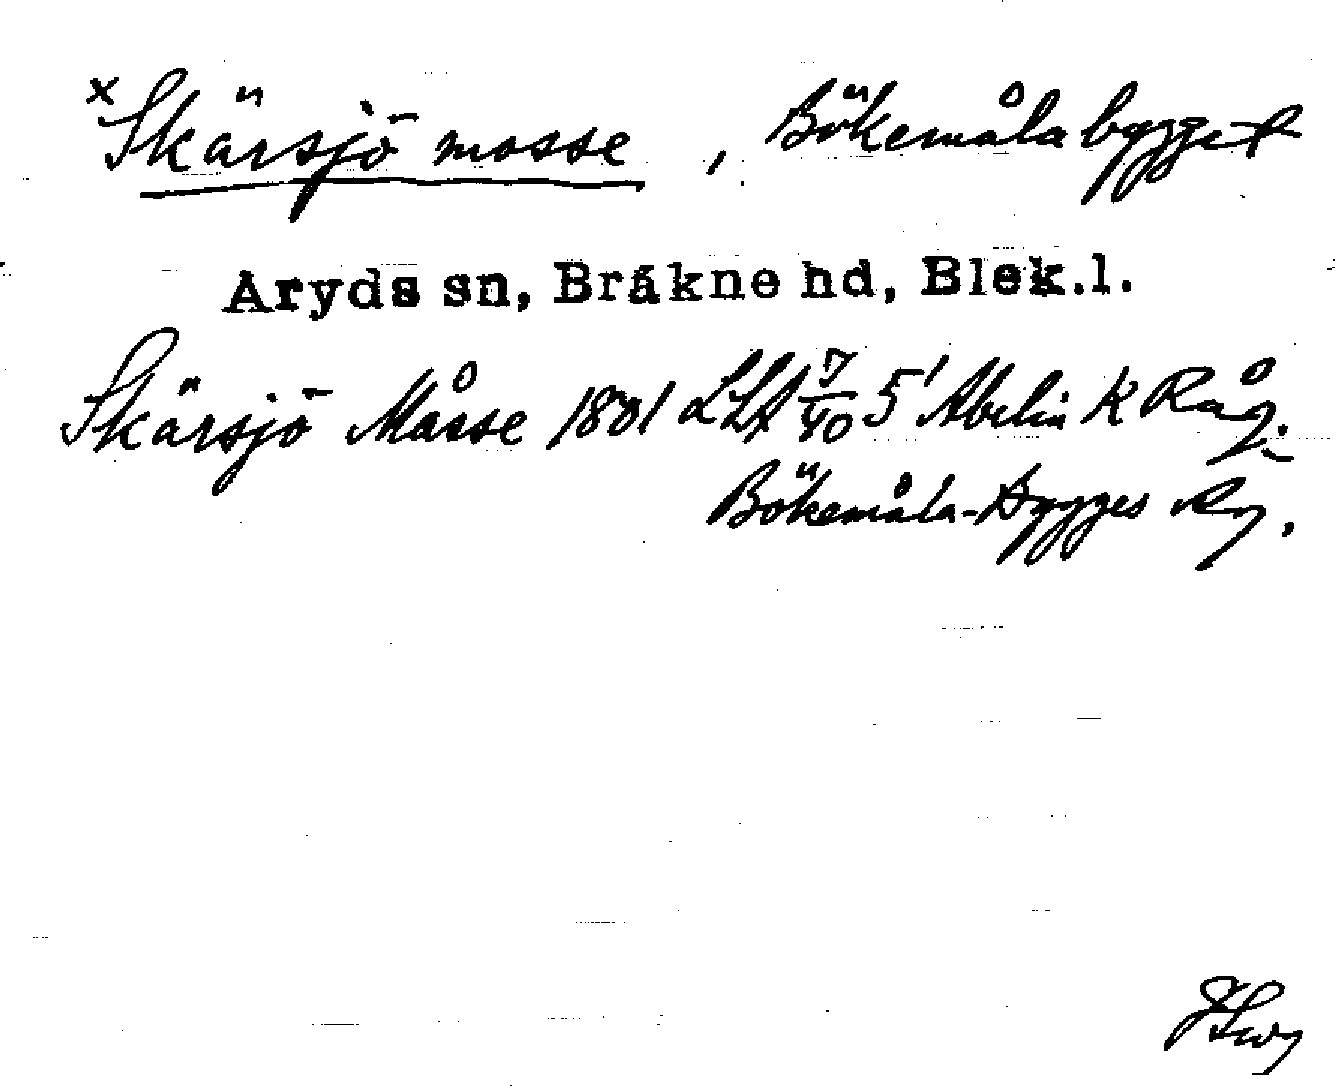 x Skärsjö mosse, Bökemåla bygget
Aryds sn, Bräkne hd, Blek.l.
Skärsjö Måsse 1801 LSA 7/40 5' Abelin K Råg.
Bökemåla-Bygges Rg.